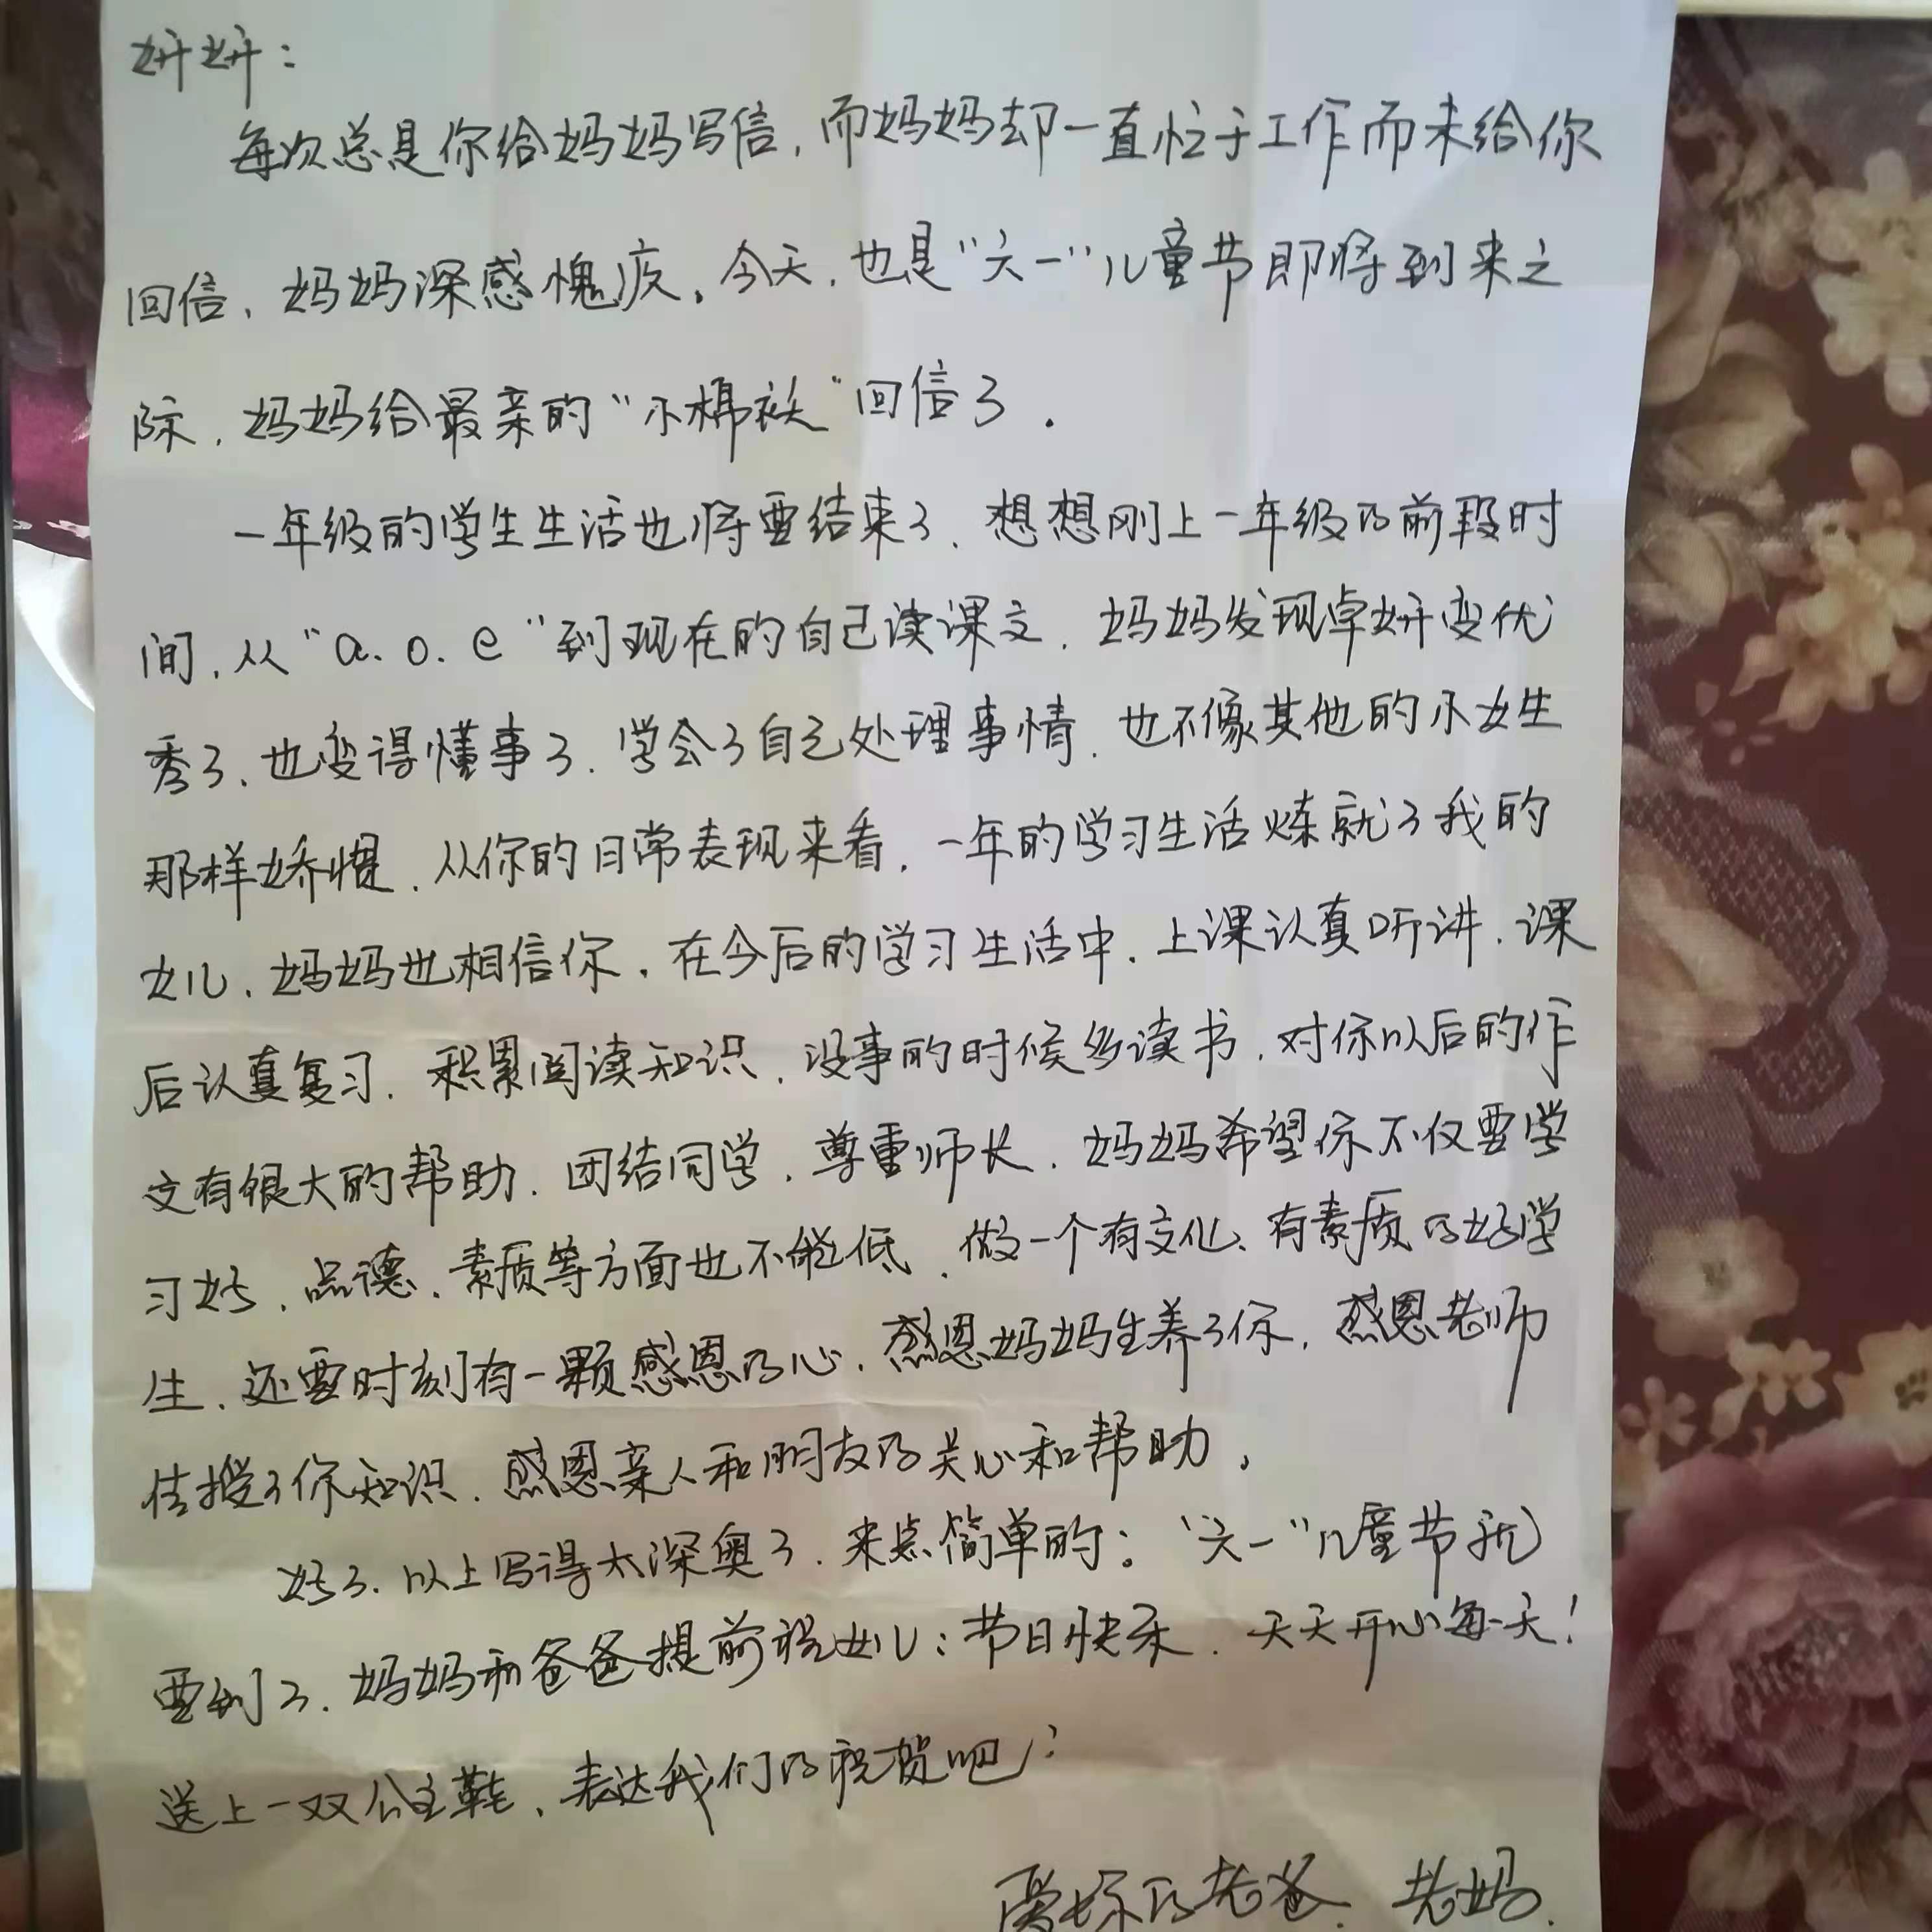 妍妍：
每次总是你给妈妈写信，而妈妈却一直忙于工作而未给你
回信，妈妈深感愧疚。今天，也是“六一”儿童节即将到来之
际，妈妈给最亲的“小棉袄”回信了。
一年级的学生生活也将要结束了，想想刚上一年级的前段时
间，从“a、o、e”到现在的自己读课文，妈妈发现卓妍变优
秀了、也变得懂事了，学会了自己处理事情，也不像其他的小女生
那样娇惯，从你的日常表现来看，一年的学习生活炼就了我的
女儿，妈妈也相信你，在今后的学习生活中，上课认真听讲，课
后认真复习，积累阅读知识，没事的时候多读书，对你以后的作
文有很大的帮助，团结同学，尊重师长，妈妈希望你不仅要学
习好，品德、素质等方面也不能低，做一个有文化、有素质的好学
生，还要时刻有一颗感恩的心，感恩妈妈生养了你，感恩老师
传授了你知识，感恩亲人和朋友的关心和帮助。
好了，以上写得太深奥了，来点简单的：“六一”儿童节就
要到了，妈妈和爸爸提前祝女儿：节日快乐，天天开心每一天！
送上一双公主鞋，表达我们的祝贺吧！
爱你的老爸、老妈